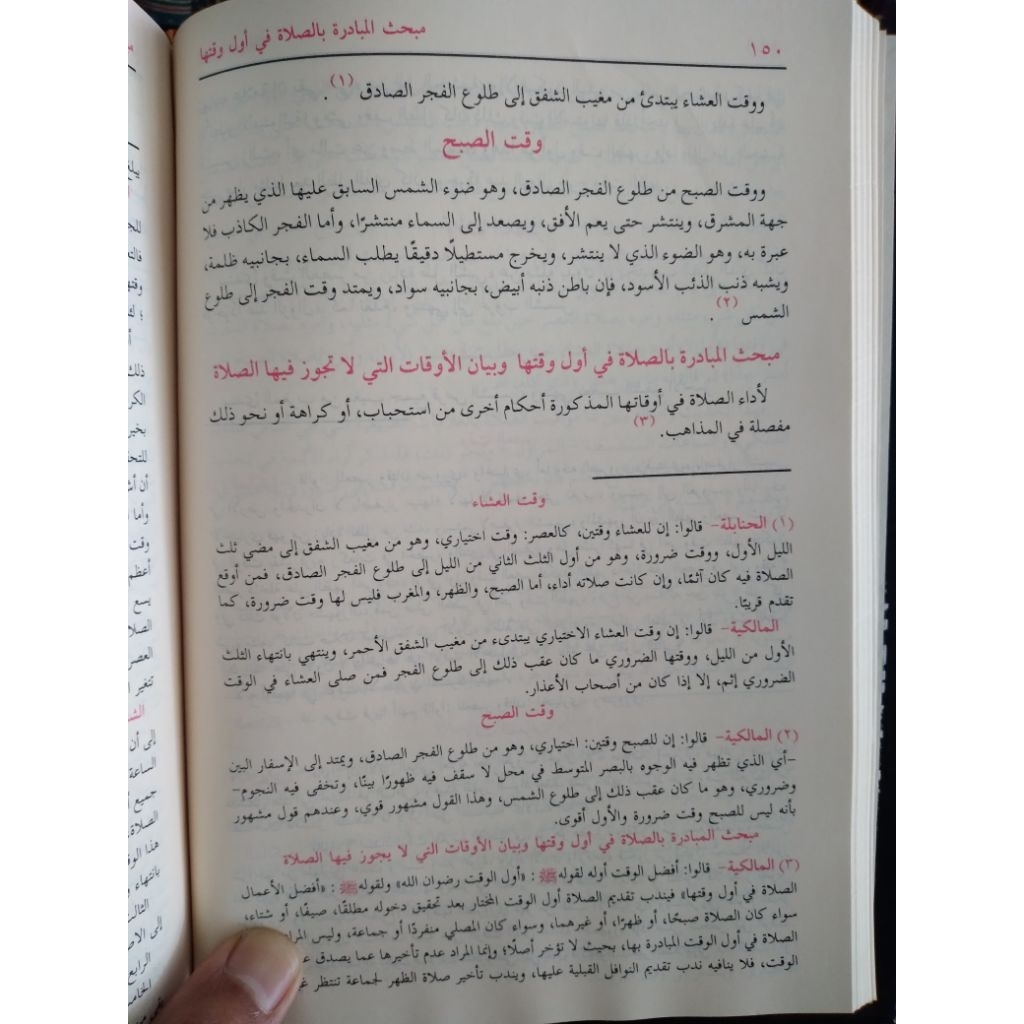 ١٥٠
مبحث المبادرة بالصلاة في أول وقتها
ووقت العشاء يبتدئ من مغيب الشفق إلى طلوع الفجر الصادق (١).
وقت الصبح
ووقت الصبح من طلوع الفجر الصادق، وهو ضوء الشمس السابق عليها الذي يظهر من
جهة المشرق، وينتشر حتى يعم الأفق، ويصعد إلى السماء منتشرًا، وأما الفجر الكاذب فلا
عبرة به، وهو الضوء الذي لا ينتشر، ويخرج مستطيلًا دقيقًا يطلب السماء، بجانبيه ظلمة،
ويشبه ذنب الذئب الأسود، فإن باطن ذنبه أبيض، بجانبيه سواد، ويمتد وقت الفجر إلى طلوع
الشمس (٢).
مبحث المبادرة بالصلاة في أول وقتها وبيان الأوقات التي لا تجوز فيها الصلاة
لأداء الصلاة في أوقاتها المذكورة أحكام أخرى من استحباب، أو كراهة أو نحو ذلك
مفصلة في المذاهب. (٣)
وقت العشاء
(١) الحنابلة- قالوا: إن للعشاء وقتين، كالعصر: وقت اختياري، وهو من مغيب الشفق إلى مضي ثلث
الليل الأول، ووقت ضرورة، وهو من أول الثلث الثاني من الليل إلى طلوع الفجر الصادق، فمن أوقع
الصلاة فيه كان آثمًا، وإن كانت صلاته أداء، أما الصبح، والظهر، والمغرب فليس لها وقت ضرورة، كما
تقدم قريبًا.
المالكية- قالوا: إن وقت العشاء الاختياري يبتدىء من مغيب الشفق الأحمر، وينتهي بانتهاء الثلث
الأول من الليل، ووقتها الضروري ما كان عقب ذلك إلى طلوع الفجر فمن صلى العشاء في الوقت
الضروري إثم، إلا إذا كان من أصحاب الأعذار.
وقت الصبح
(٢) المالكية- قالوا: إن للصبح وقتين: اختياري، وهو من طلوع الفجر الصادق، ويمتد إلى الإسفار البين
-أي الذي تظهر فيه الوجوه بالبصر المتوسط في محل لا سقف فيه ظهورًا بينًا، وتخفى فيه النجوم-
وضروري، وهو ما كان عقب ذلك إلى طلوع الشمس، وهذا القول مشهور قوي، وعندهم قول مشهور
بأنه ليس للصبح وقت ضرورة والأول أقوى.
مبحث المبادرة بالصلاة في أول وقتها وبيان الأوقات التي لا يجوز فيها الصلاة
(٣) المالكية- قالوا: أفضل الوقت أوله لقوله ﷺ: «أول الوقت رضوان الله» ولقوله ﷺ: «أفضل الأعمال
الصلاة في أول وقتها» فيندب تقديم الصلاة أول الوقت المختار بعد تحقيق دخوله مطلقًا، صيفًا، أو شتاء،
سواء كان الصلاة صبحًا، أو ظهرًا، أو غيرهما، وسواء كان المصلي منفردًا أو جماعة، وليس
الصلاة في أول الوقت المبادرة بها، بحيث لا تؤخر أصلًا؛ وإنما المراد عدم تأخيرها عما يصدق
الوقت، فلا ينافيه ندب تقديم النوافل القبلية عليها، ويندب تأخير صلاة الظهر لجماعة تنتظر